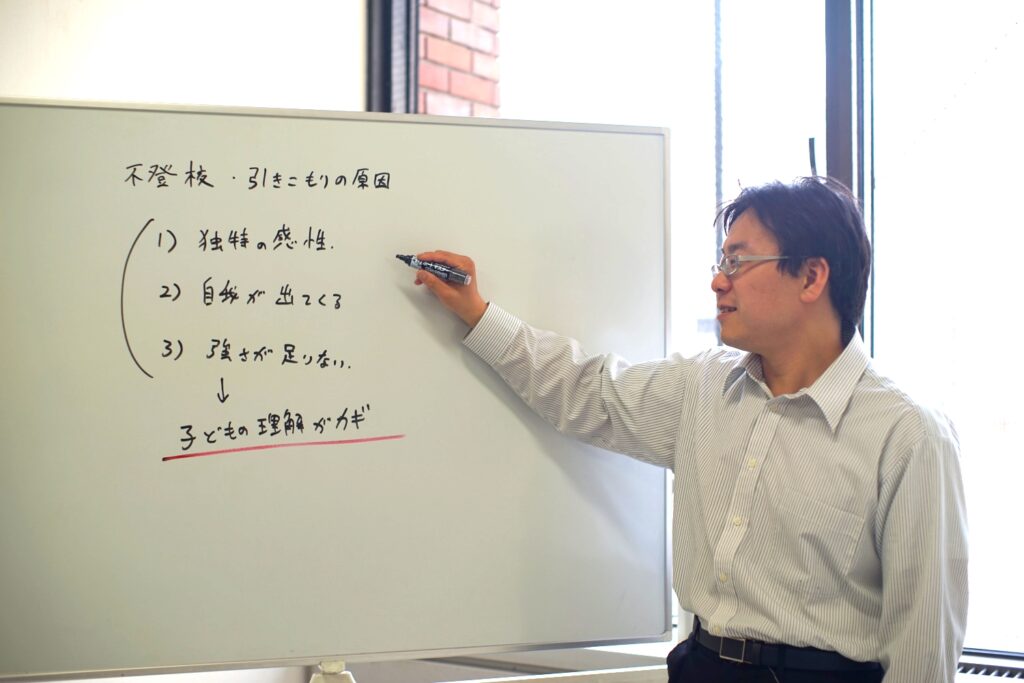 不登校・引きこもりの原因
1) 独特の感性.
2) 自我が出てくる
3) 強さが足りない.
↓
子どもの理解がカギ